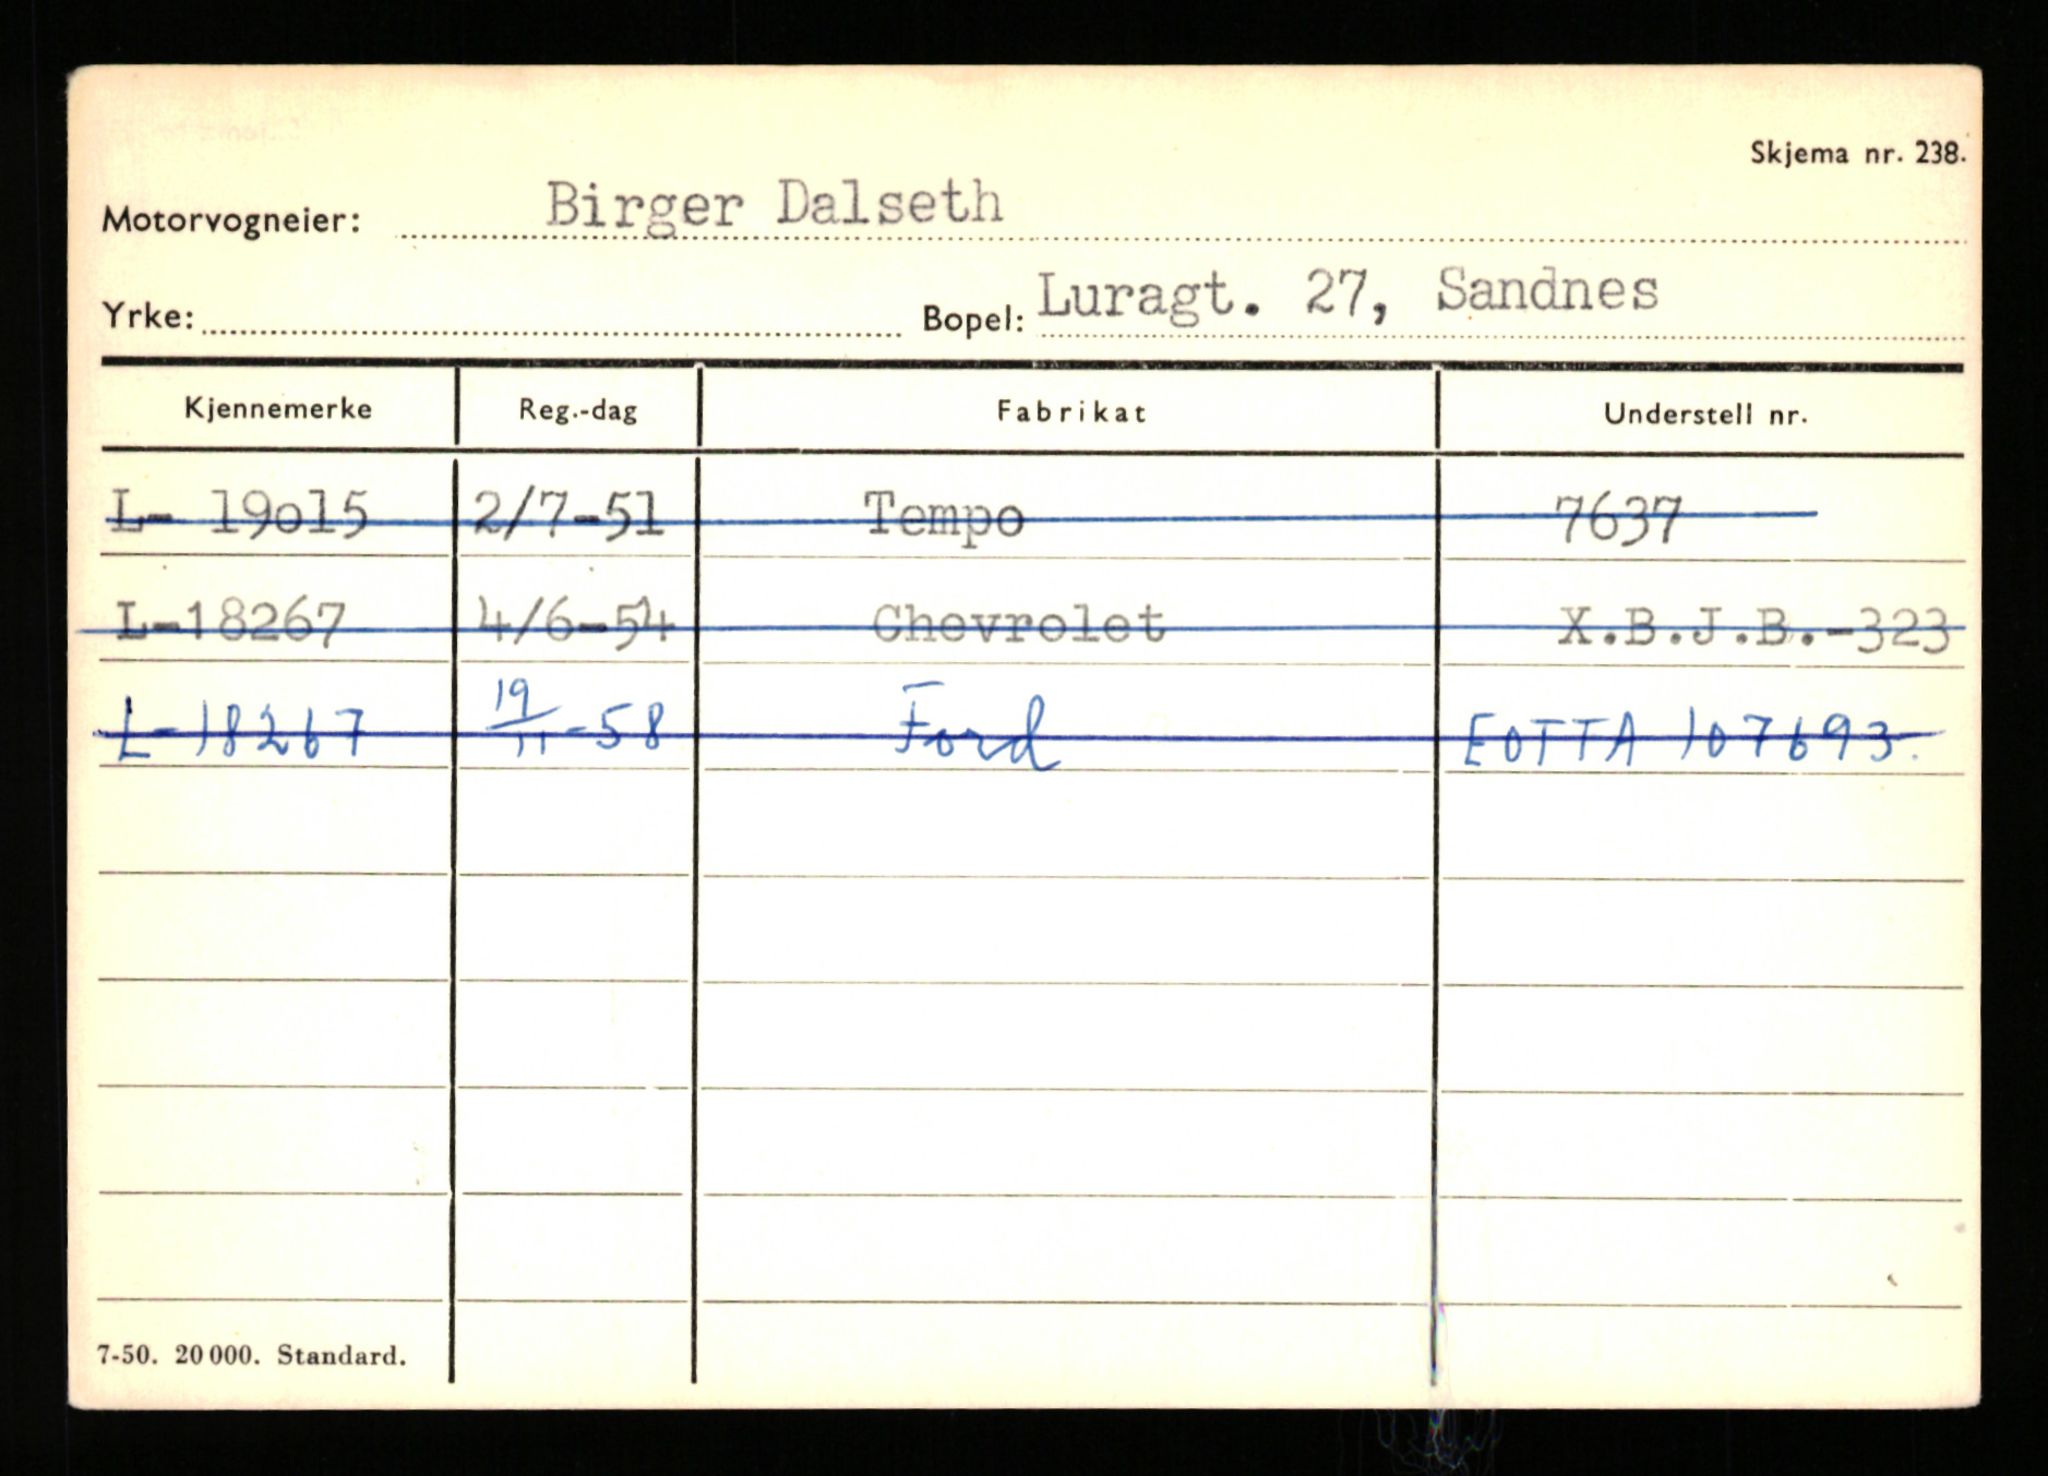 Skjema nr. 238.
Motorvogneier: Birger Dalseth
Yrke: Bopel: Luragt. 27, Sandnes
Kjennemerke Reg.-dag Fabrikat Understell nr.
L- 19o15 2/7-51 Tempo 7637
L-18267 4/6-54 Chevrolet X.B.J.B.-323
L-18267 19/11-58 Ford EOTTA 107693.
7-50. 20 000. Standard.